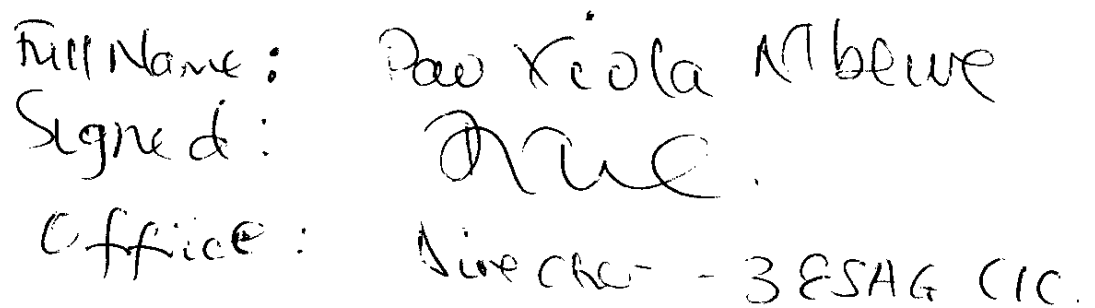 Full Name: Pao Viola Mbewe
Signed:
Office: Director - 3ESAG CIC.